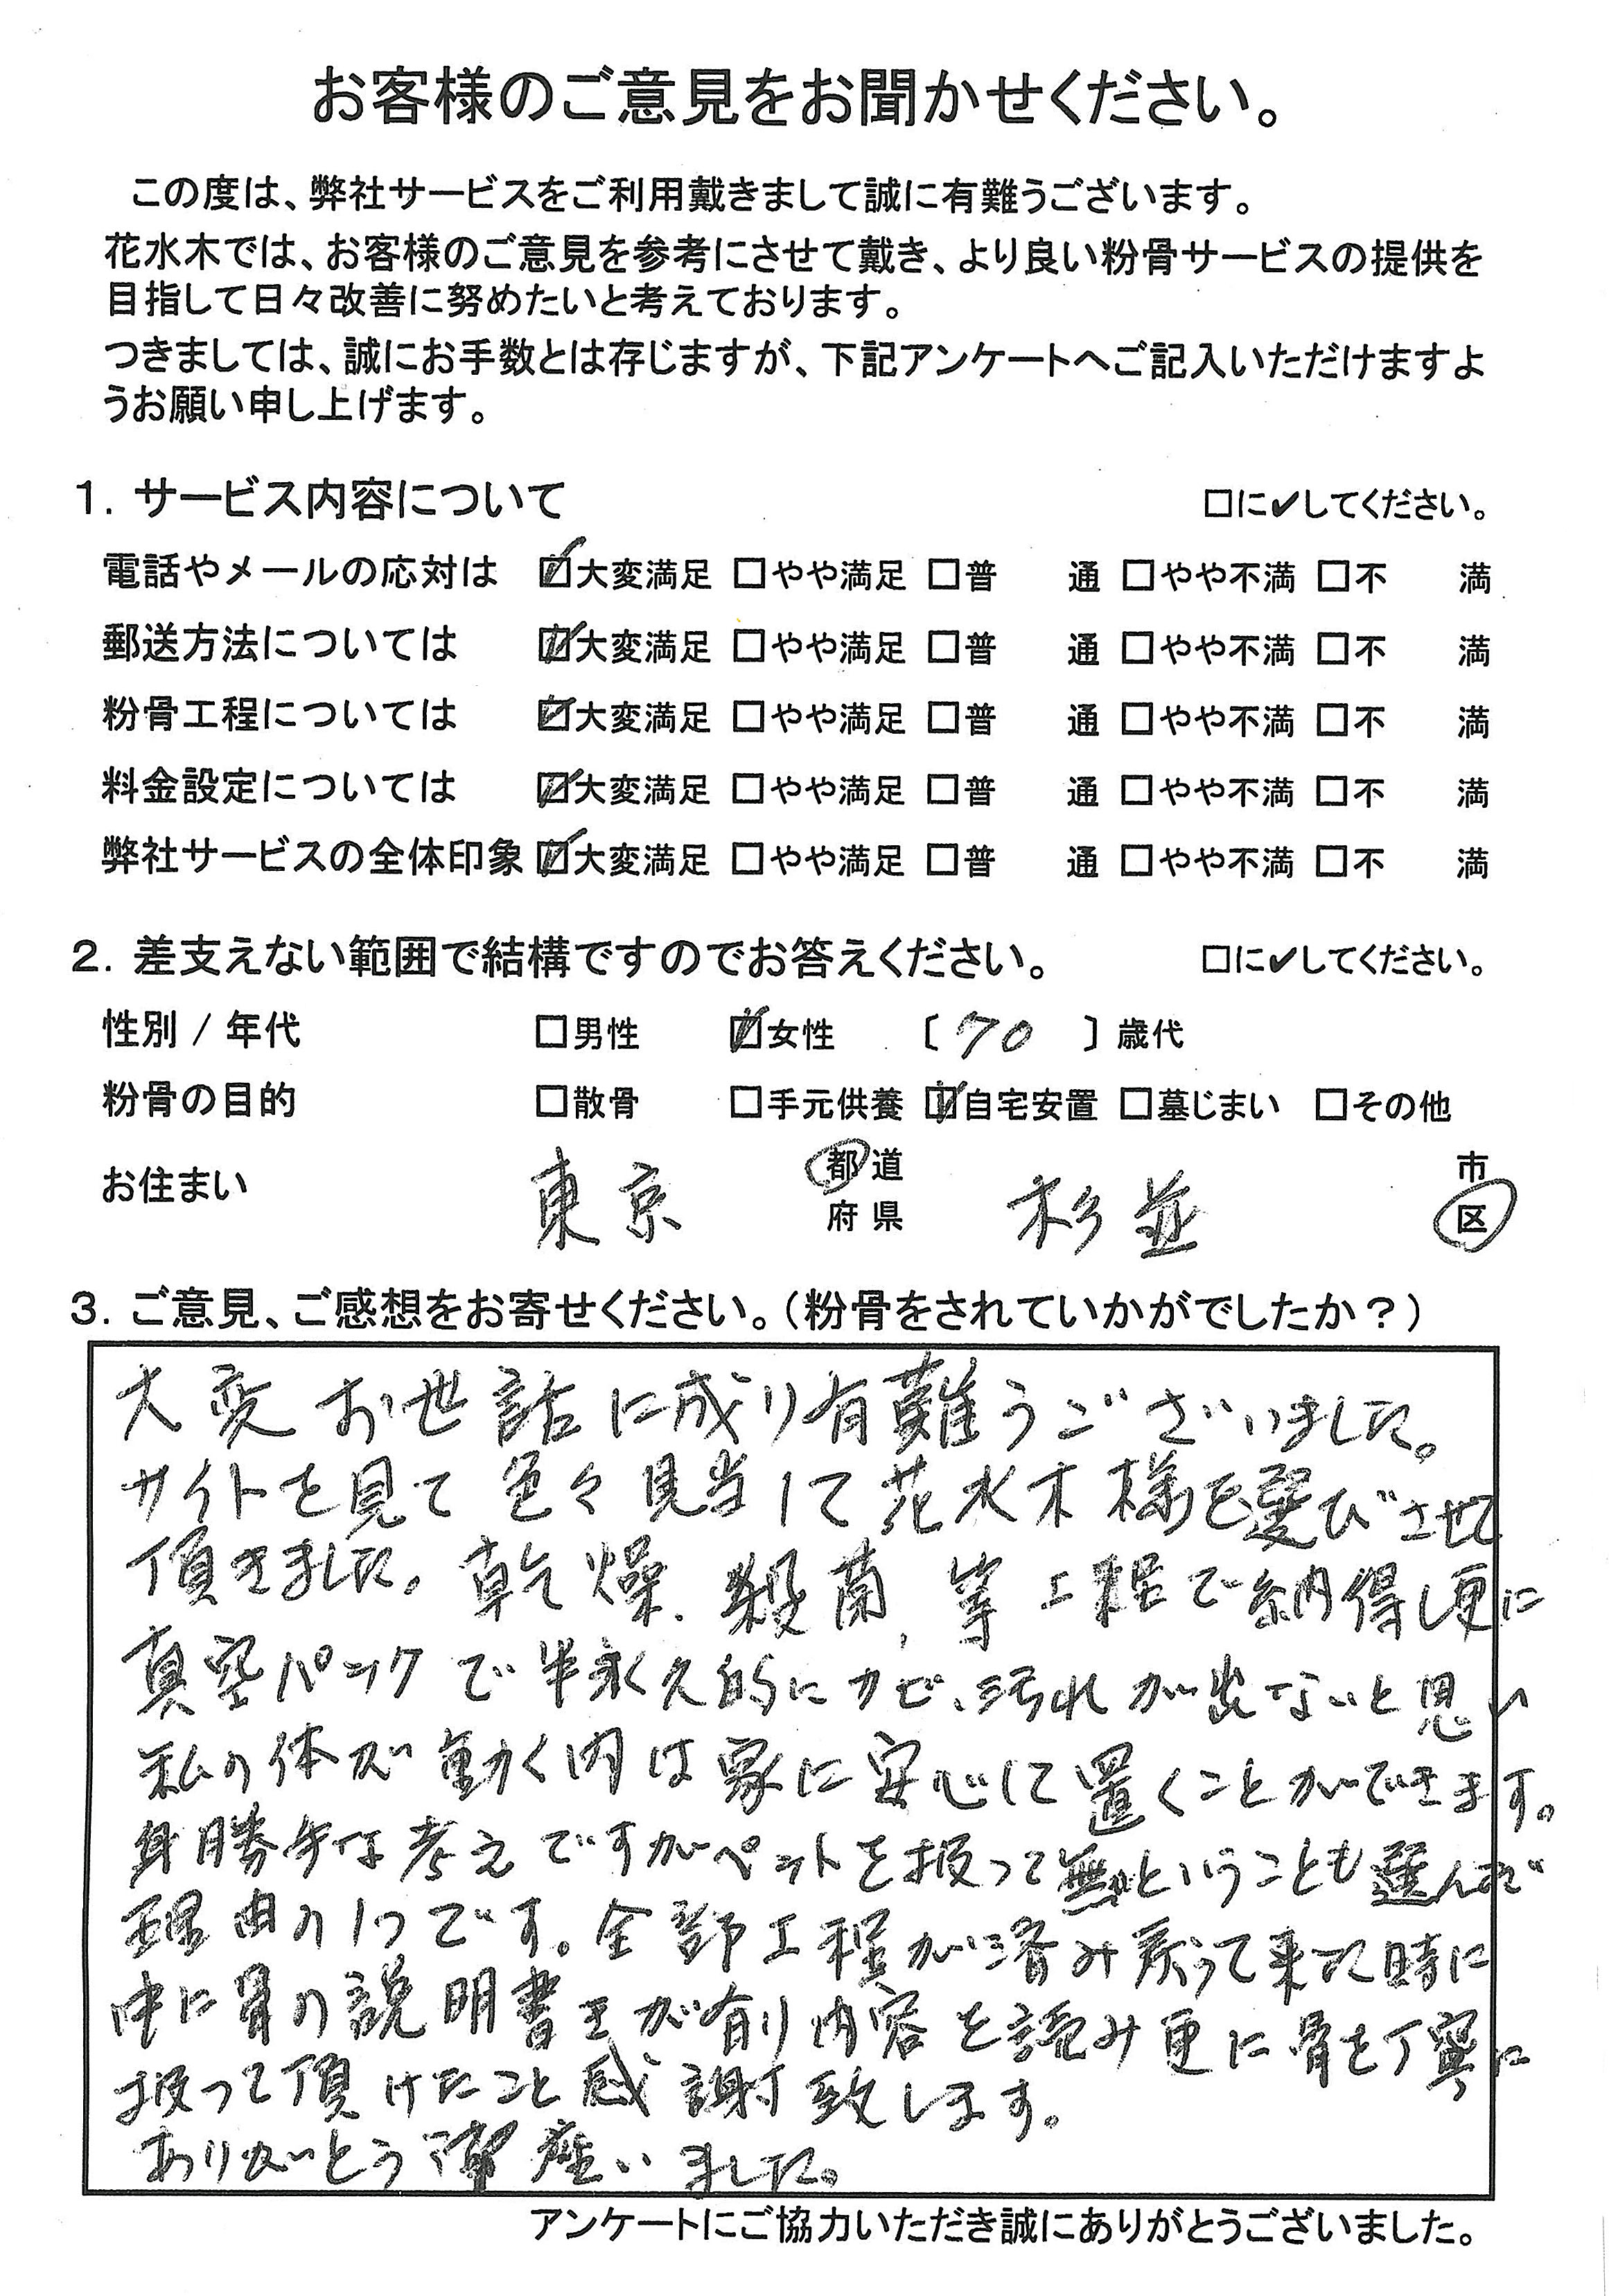 お客様のご意見をお聞かせください。
この度は、弊社サービスをご利用戴きまして誠に有難うございます。
花水木では、お客様のご意見を参考にさせて戴き、より良い粉骨サービスの提供を
目指して日々改善に努めたいと考えております。
つきましては、誠にお手数とは存じますが、下記アンケートへご記入いただけますよ
うお願い申し上げます。
1. サービス内容について □に✓してください。
電話やメールの応対は ☑大変満足 □やや満足 □普 通 □やや不満 □不 満
郵送方法については ☑大変満足 □やや満足 □普 通 □やや不満 □不 満
粉骨工程については ☑大変満足 □やや満足 □普 通 □やや不満 □不 満
料金設定については ☑大変満足 □やや満足 □普 通 □やや不満 □不 満
弊社サービスの全体印象 ☑大変満足 □やや満足 □普 通 □やや不満 □不 満
2. 差支えない範囲で結構ですのでお答えください。 □に✓してください。
性別 / 年代 □男性 ☑女性 〔 70 〕歳代
粉骨の目的 □散骨 □手元供養 ☑自宅安置 □墓じまい □その他
お住まい 東京 都道府県 杉並 市区
3. ご意見、ご感想をお寄せください。（粉骨をされていかがでしたか？）
大変お世話に成り有難うございました。
サイトを見て色々見当して花水木様を選びさせて
頂きました。乾燥、殺菌、等工程で納得し更に
真空パックで半永久的にカビ、汚れが出ないと思い
私の体が動く内は家に安心して置くことができます。
身勝手な考えですがペットを扱って無いということも選んだ
理由の1つです。全部工程が済み戻って来た時に
中に骨の説明書きが有り内容を読み更に骨を丁寧に
扱って頂けたこと感謝致します。
ありがとう御座いました。
アンケートにご協力いただき誠にありがとうございました。